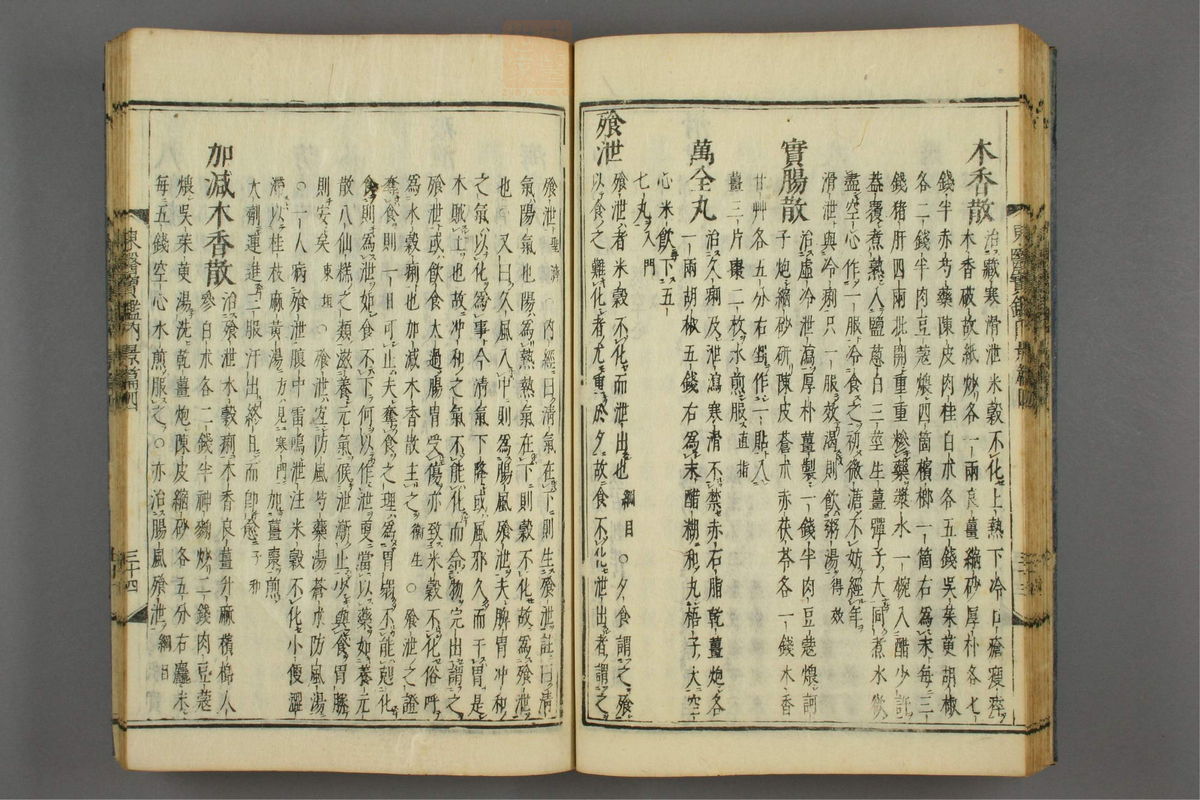 木香散
治藏寒滑泄米穀不化上熱下冷口瘡瘦瘁
木香破故紙炒各一兩良薑縮砂厚朴各七
錢半赤芍藥陳皮肉桂白朮各五錢吳茱萸胡椒
各二錢半肉豆蔻煨四箇檳榔一箇右爲末每三
錢猪肝四兩批開重重糝藥漿水一碗入醋少許
蓋覆煮熟入鹽葱白三莖生薑彈子大同煮水欲
盡空心作一服冷食之初微溏不妨經年
滑泄與冷痢只一服效渴則飲粥湯得效
實腸散
治虛冷泄瀉厚朴薑製一錢半肉豆蔻煨訶
子炮縮砂研陳皮蒼朮赤茯苓各一錢木香
甘艸各五分右剉作一貼入
薑三片棗二枚水煎服直指
萬全丸
治久痢及泄瀉寒滑不禁赤石脂乾薑炮各
一兩胡椒五錢右爲末醋糊和丸梧子大空
心米飮下五
七丸入門
飱泄
飱泄者米穀不化而泄出也綱目○夕食謂之飱
以食之難化者尤重於夕故食不化泄出者謂之
飱泄聖濟○內經曰淸氣在下則生飱泄註曰淸
氣陽氣也陽爲熱熱氣在下則穀不化故爲飱泄
也○又曰久風入中則爲腸風飱泄夫脾胃冲和
之氣以化爲事今淸氣下降或風邪久而干胃是
木賊土也故冲和之氣不能化而令物完出謂之
飱泄或飮食太過腸胃受傷亦致米穀不化俗呼
爲水穀痢也加減木香散主之衛生○飱泄之證
奪食則一日可止夫奪食之理爲胃弱不能剋化
食則爲泄如食不下何以作泄更當以藥如養元
散八仙糕之類滋養元氣候泄漸止少與食胃勝
則安矣東垣○飱泄宜防風芍藥湯蒼朮防風湯
○一人病飱泄腹中雷鳴泄注米穀不化小便澁
滯以桂枝麻黃湯方見寒門加薑棗煎
大劑連進三服汗出終日而卽愈子和
加減木香散
治飱泄水穀痢木香良薑升麻檳榔人
參白朮各二錢半神麴炒二錢肉豆蔻
煨吳茱萸湯洗乾薑炮陳皮縮砂各五分右麤末
每五錢空心水煎服之○亦治腸風飱泄綱目
東醫寶鑑內景篇四
三十四